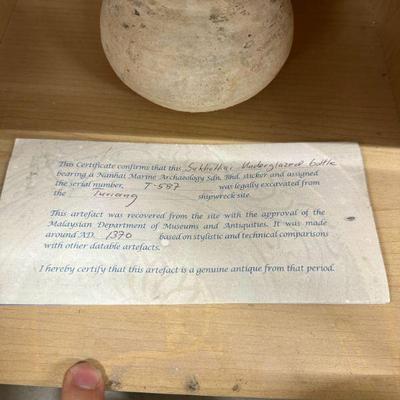 This Certificate confirms that this Sukhothai Underglazed bottle
bearing a Nanhai Marine Archaeology Sdn. Bhd. sticker and assigned
the serial number, T-587 was legally excavated from
the Turiang shipwreck site.
This artefact was recovered from the site with the approval of the
Malaysian Department of Museums and Antiquities. It was made
around AD. 1370 based on stylistic and technical comparisons
with other datable artefacts.
I hereby certify that this artefact is a genuine antique from that period.